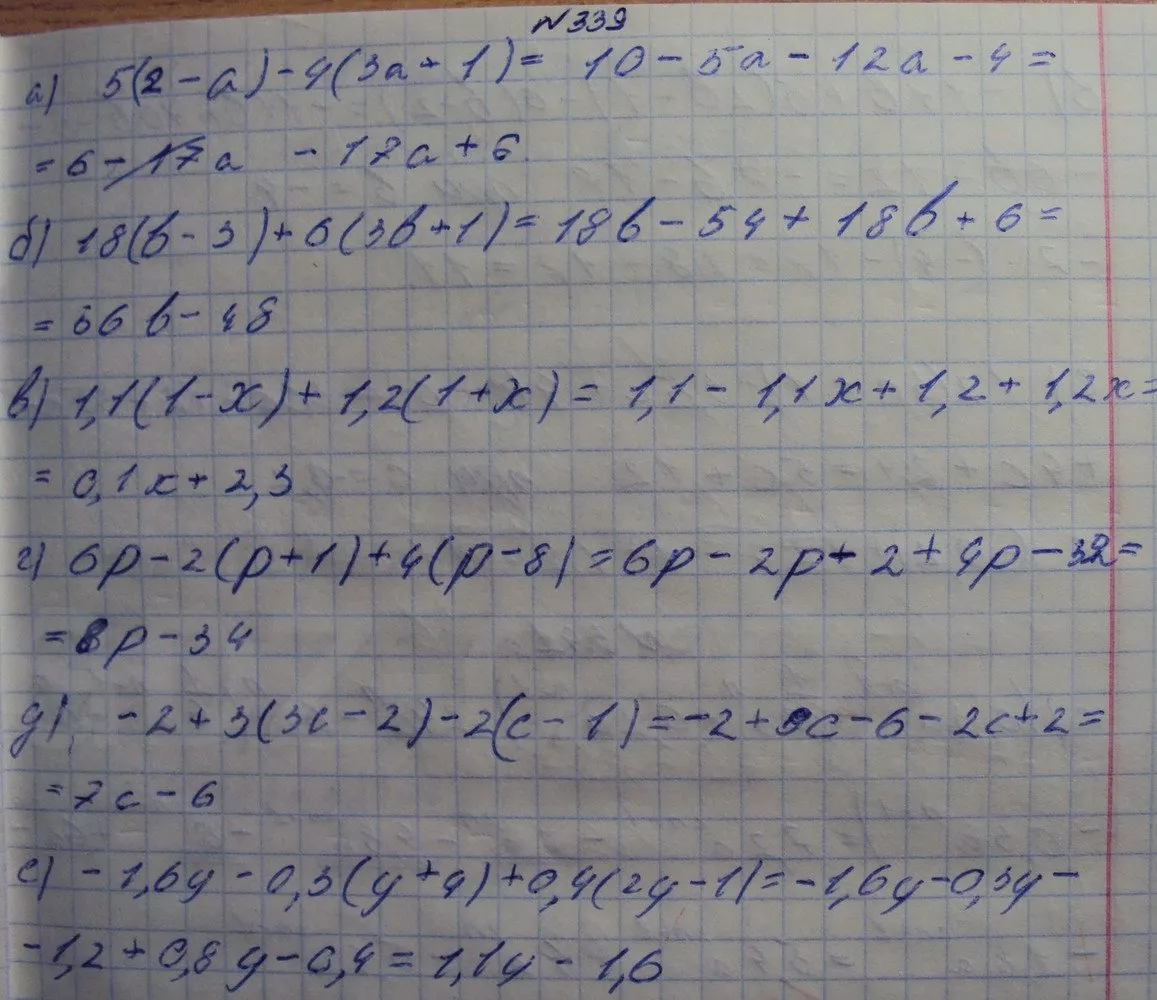 №339
а) 5(2-а)-4(3а+1)= 10-5а-12а-4=
=6-17а -17а+6
б) 18(b-3)+6(3b+1)=18b-54+18b+6=
=36b-48
в) 1,1(1-x)+1,2(1+x)=1,1-1,1x+1,2+1,2x=
=0,1x+2,3
г) 6p-2(p+1)+4(p-8)=6p-2p-2+4p-32=
=8p-34
д) -2+3(3c-2)-2(c-1)=-2+9c-6-2c+2=
=7c-6
е) -1,6y-0,3(y+4)+0,4(2y-1)=-1,6y-0,3y-
-1,2+0,8y-0,4=1,1y-1,6